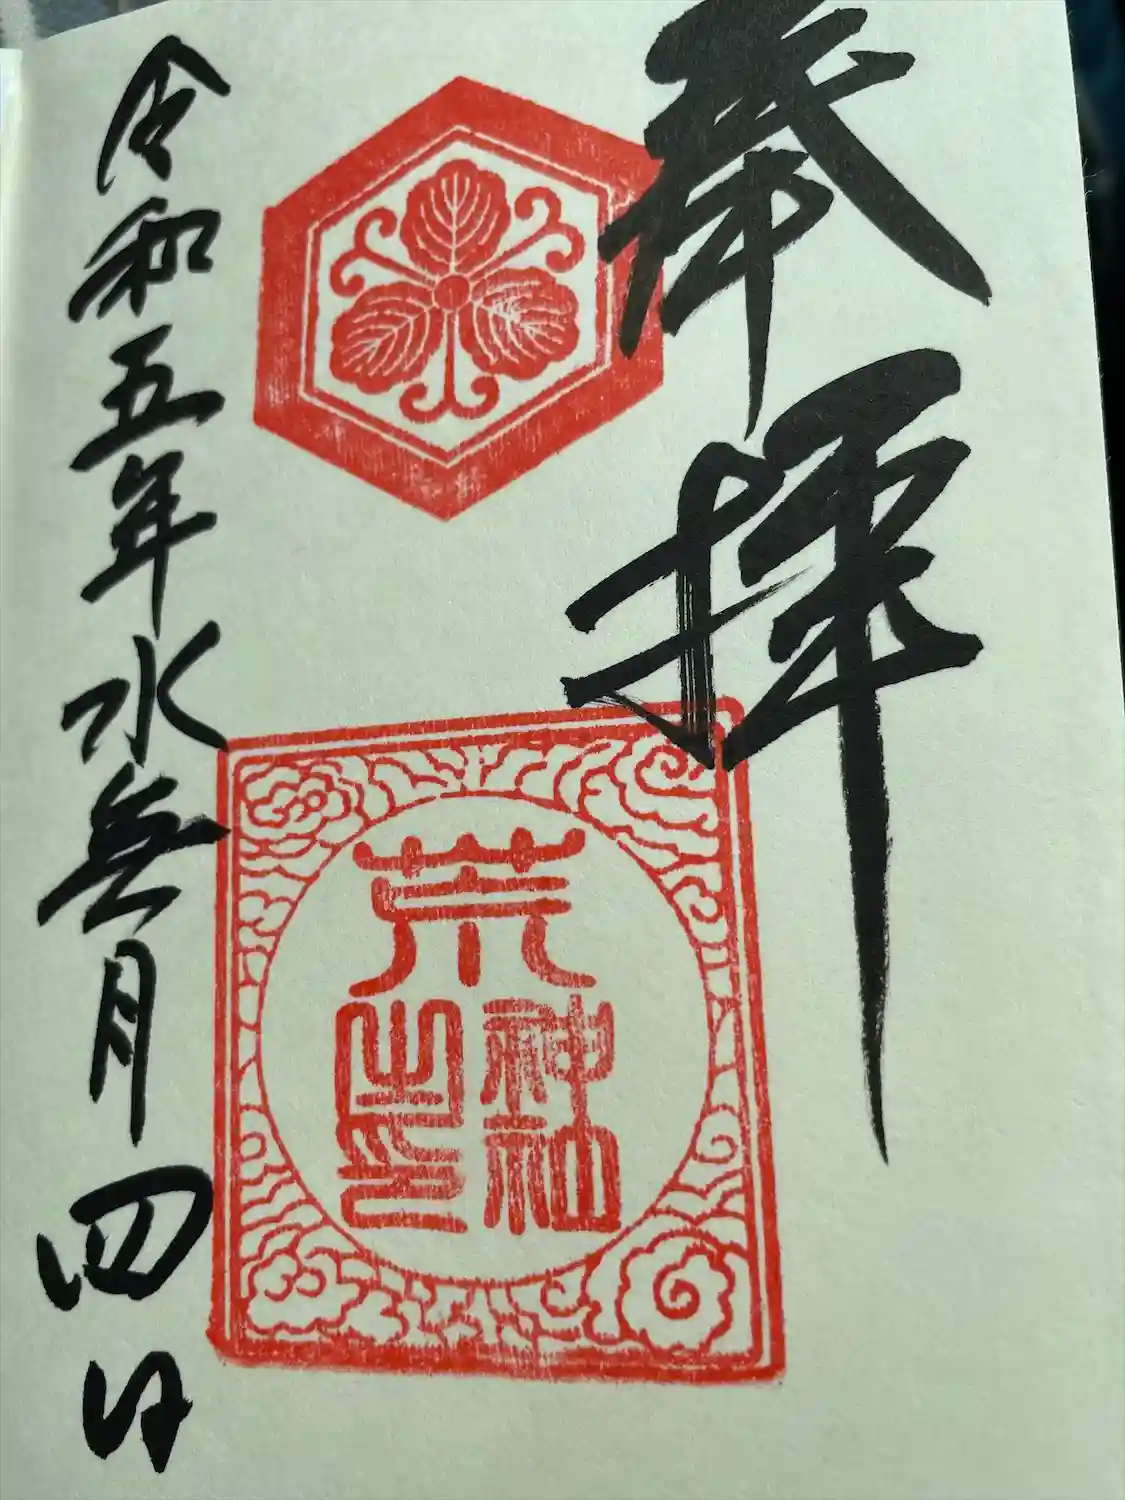 奉拝
荒神社之印
令和五年水無月四日